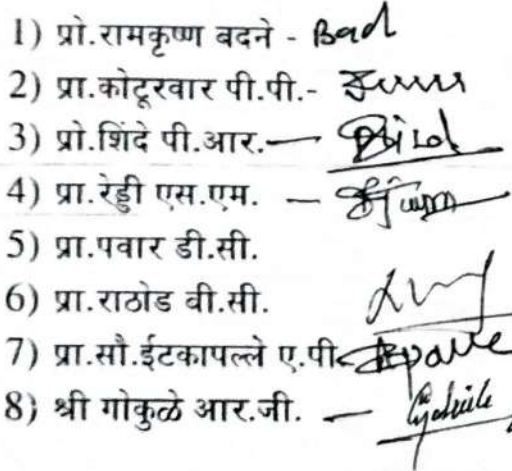 1) प्रो.रामकृष्ण बदने - Bad
2) प्रा.कोटूरवार पी.पी.-
3) प्रो.शिंदे पी.आर.—
4) प्रा.रेड्डी एस.एम. —
5) प्रा.पवार डी.सी.
6) प्रा.राठोड वी.सी.
7) प्रा.सौ.ईटकापल्ले ए.पी-
8) श्री गोकुळे आर.जी. —